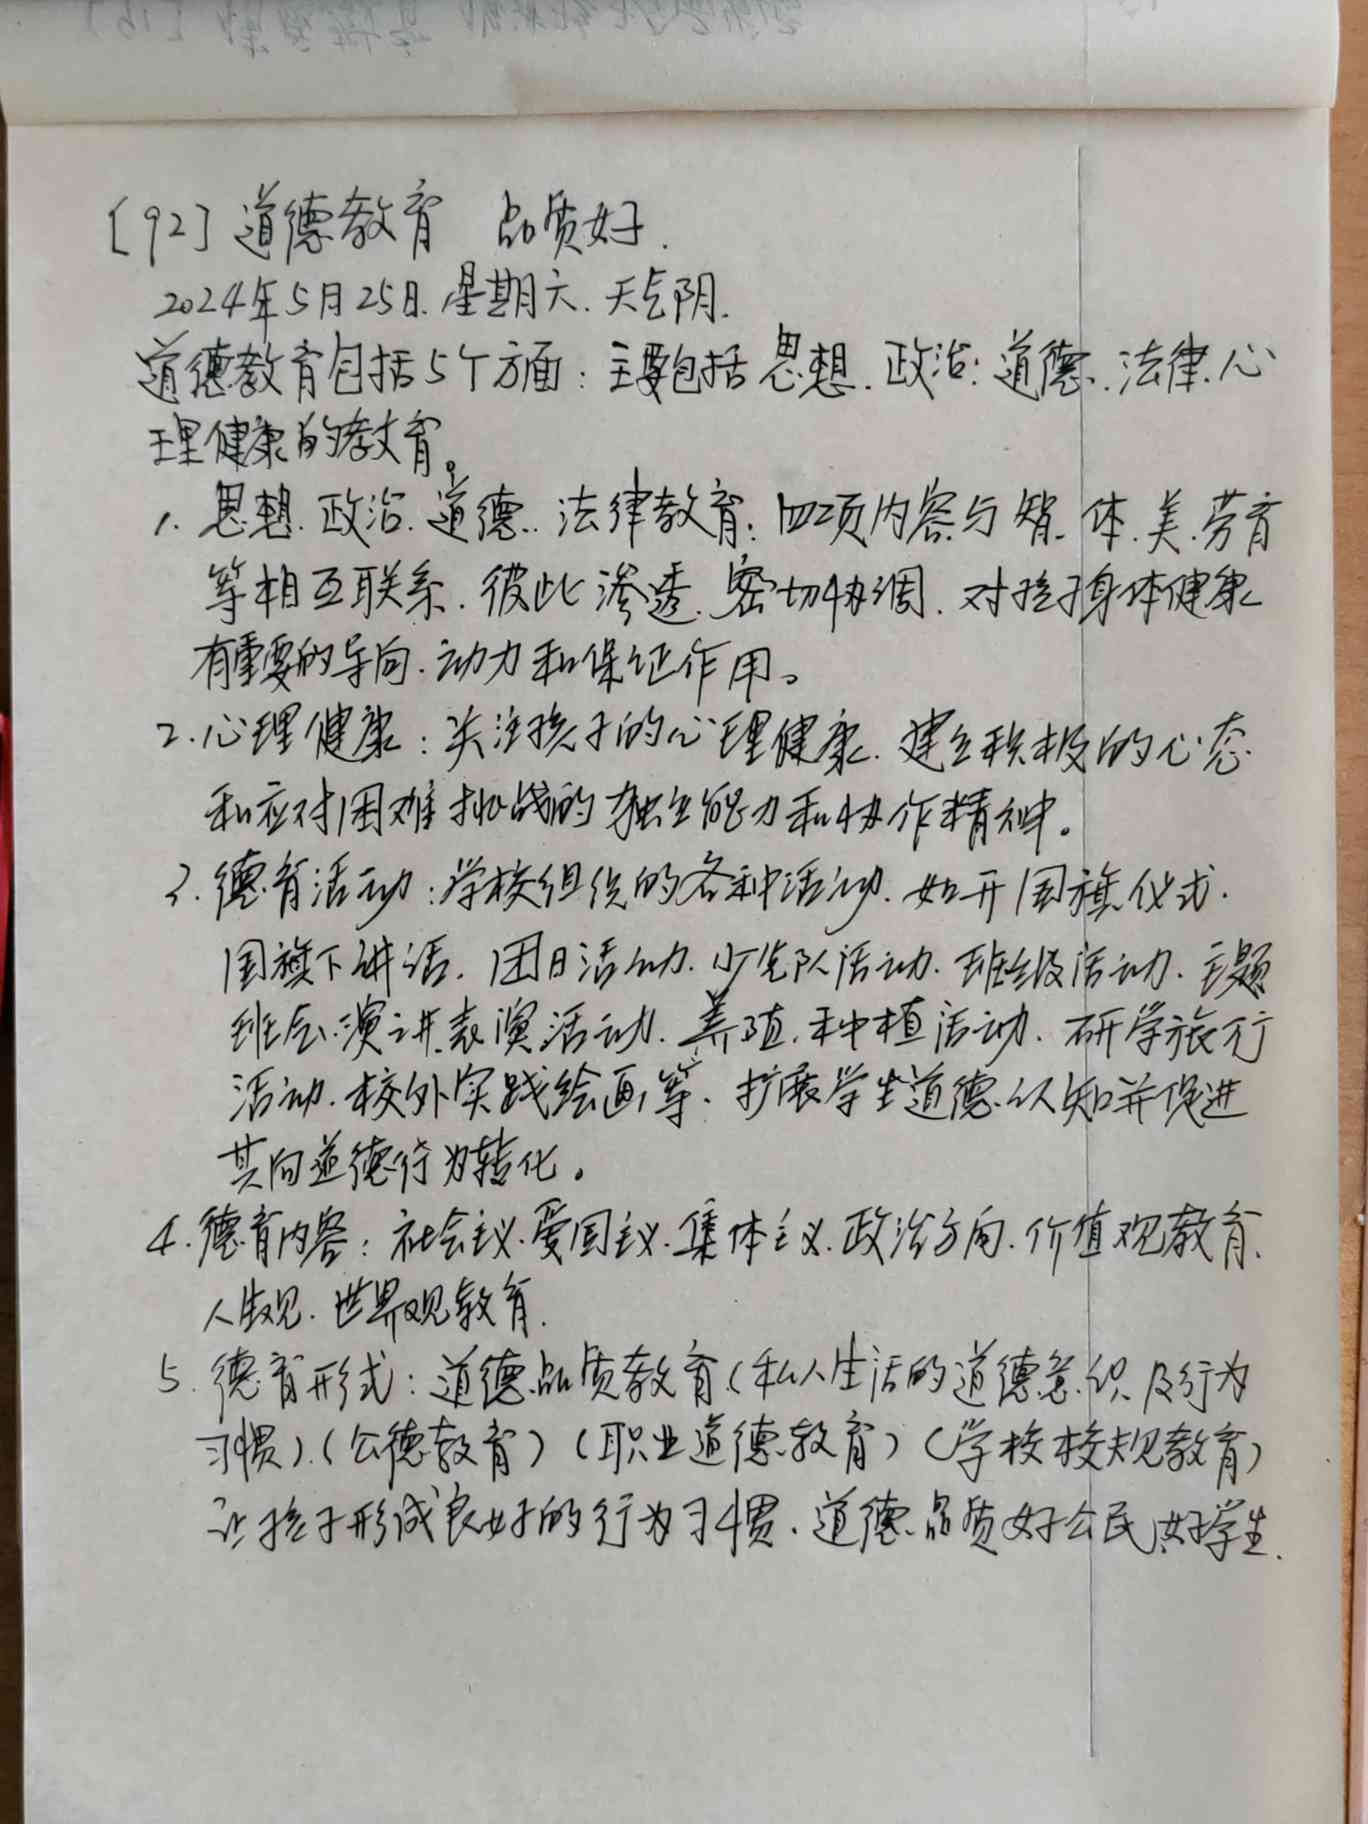 [92] 道德教育 品质好.
2024年5月25日.星期六.天气阴.
道德教育包括5个方面:主要包括思想.政治.道德.法律.心
理健康的教育。
1. 思想.政治.道德..法律教育:四项内容与智.体.美.劳育
等相互联系.彼此渗透.密切协调.对孩子身体健康
有重要的导向.动力和保证作用。
2.心理健康:关注孩子的心理健康.建立积极的心态
和应对困难挑战的独立能力和协作精神。
3.德育活动:学校组织的各种活动.如开国旗仪式.
国旗下讲话.团日活动.少先队活动.班级活动.主题
班会.演讲.表演活动.养殖.种植活动.研学旅行
活动.校外实践绘画等.扩展学生道德认知并促进
其向道德行为转化。
4.德育内容:社会主义.爱国主义.集体主义.政治方向.价值观教育.
人生观.世界观教育.
5.德育形式:道德品质教育(私人生活的道德意识及行为
习惯).(公德教育)(职业道德教育)(学校校规教育)
让孩子形成良好的行为习惯.道德品质好公民.好学生.